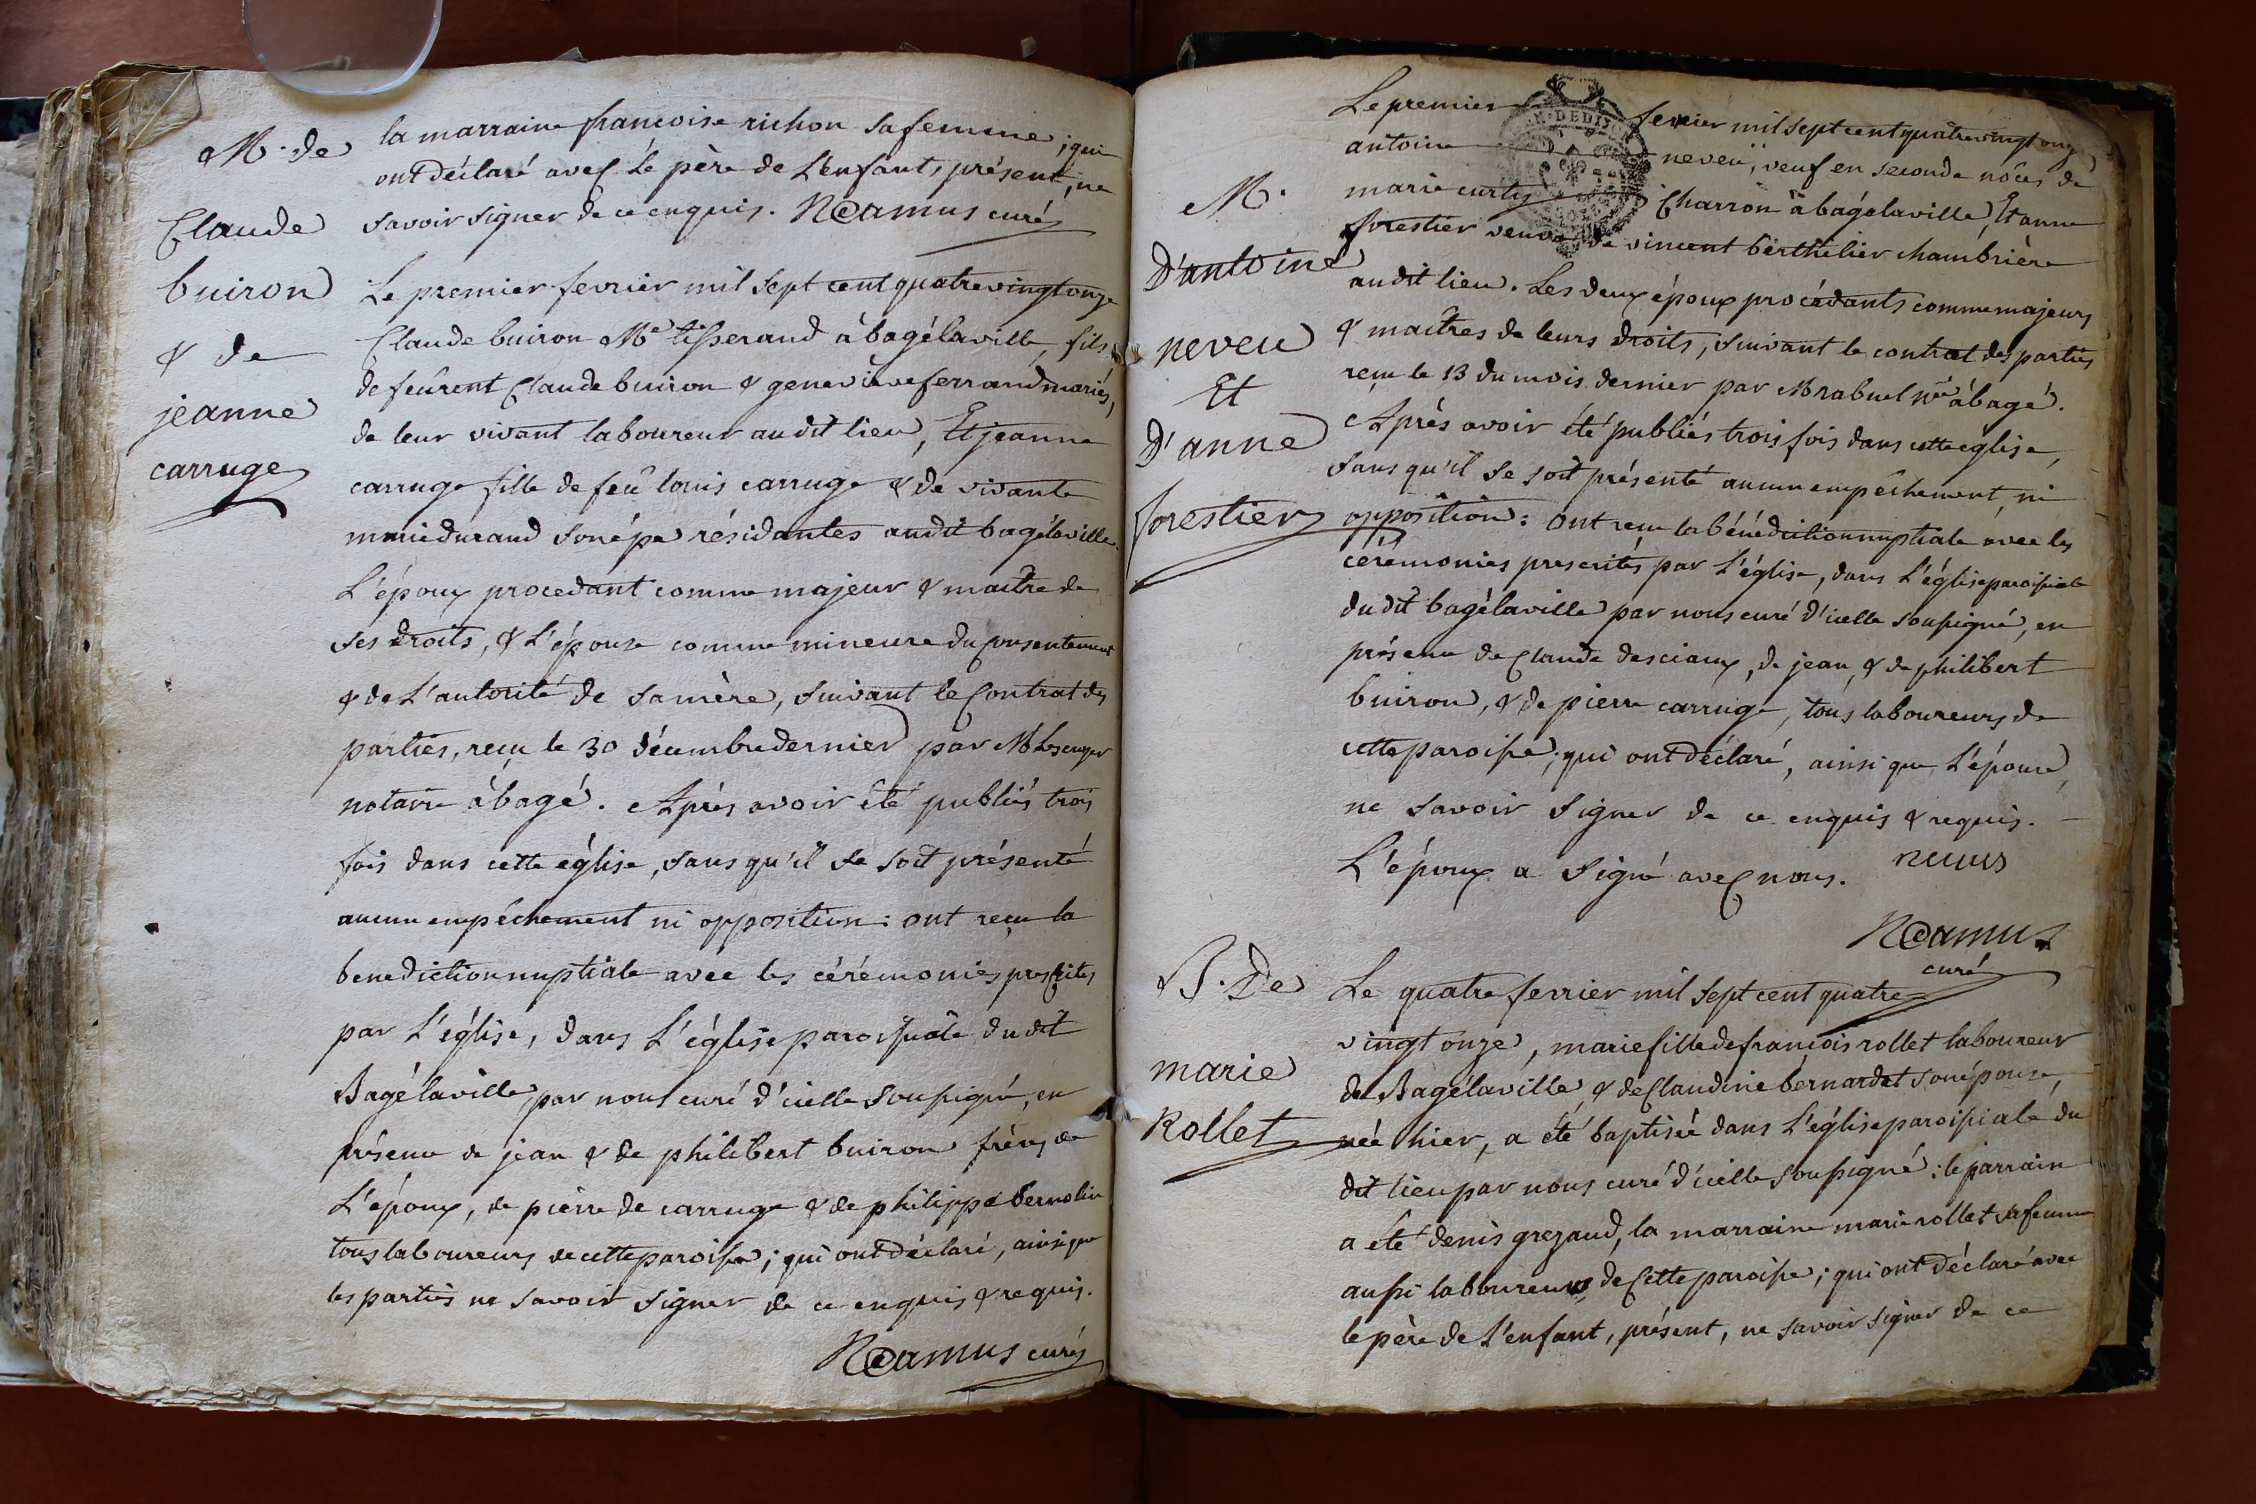 M. de
Claude
buiron
& de
jeanne
carruge
la marraine francoise richon sa femme ; qui
ont déclaré avec le père de L'enfant, présent, ne
savoir signer de ce enquis. N@amus curé
Le premier fevrier mil sept cent quatrevingt onze
Claude buiron Me tisserand à bagélaville, fils
de feûrent Claude buiron & genevieve ferrand mariés,
de leur vivant laboureur audit lieu, Et jeanne
carruge fille de feû louis carruge & de vivante
marie durand son épe résidantes audit bagélaville.
L'époux procedant comme majeur & maitre de
ses droits, & L'épouse comme mineure du consentement
& de L'autorité de sa mère, suivant le Contrat des
parties, reçu le 30 décembre dernier par M
notaire à bagé. Après avoir été publiés trois
fois dans cette église, sans qu'il se soit présenté
aucun empéchement ni opposition : ont reçu la
benediction nuptiale avec les cérémonies prescrites
par L'église, dans L'église paroissiale du dit
Bagélaville par nous curé d'icelle soussigné, en
présence de jean & de philibert buiron frères de
L'époux, de pierre de carruge & de philippe bernolin
tous laboureurs de cette paroisse ; qui ont déclaré, ainsi que
les parties ne savoir signer de ce enquis & requis.
N@amus curé
M.
D'antoine
neveu
Et
D'anne
forestier
Le premier fevrier mil sept cent quatrevingt onze
antoine neveu, veuf en seconde nôces de
marie curty Charron à bagélaville, Et anne
forestier veuve de vincent berthilier chambrière
audit lieu. Les deux époux procédants comme majeurs
& maîtres de leurs droits, suivant le contrat des parties
reçu le 13 du mois dernier par M rabuel nre à bagé.
Après avoir été publiés trois fois dans cette église,
sans qu'il se soit présenté aucun empêchement, ni
opposition : ont reçu la bénédiction nuptiale avec les
cérémonies prescrites par L'église, dans L'église paroissiale
du dit bagélaville par nous curé d'icelle soussigné, en
présence de Claude desciaux, de jean, & de philibert
buiron, & de pierre carruge, tous laboureurs de
cette paroisse ; qui ont déclaré, ainsi que L'épouse,
ne savoir signer de ce enquis & requis.
L'époux a signé avec nous.
N@amus
curé
B. De
marie
Rollet
Le quatre fevrier mil sept cent quatre
vingt onze, marie fille de francois rollet laboureur
de Bagélaville & de Claudine bernardet son épouse,
née hier, a été baptisée dans L'église paroissiale du
dit lieu par nous curé d'icelle soussigné : le parrain
a été denis grezaud, la marraine marie rollet sa femme
aussi laboureurs de Cette paroisse ; qui ont déclaré avec
le père de L'enfant, présent, ne savoir signer de ce